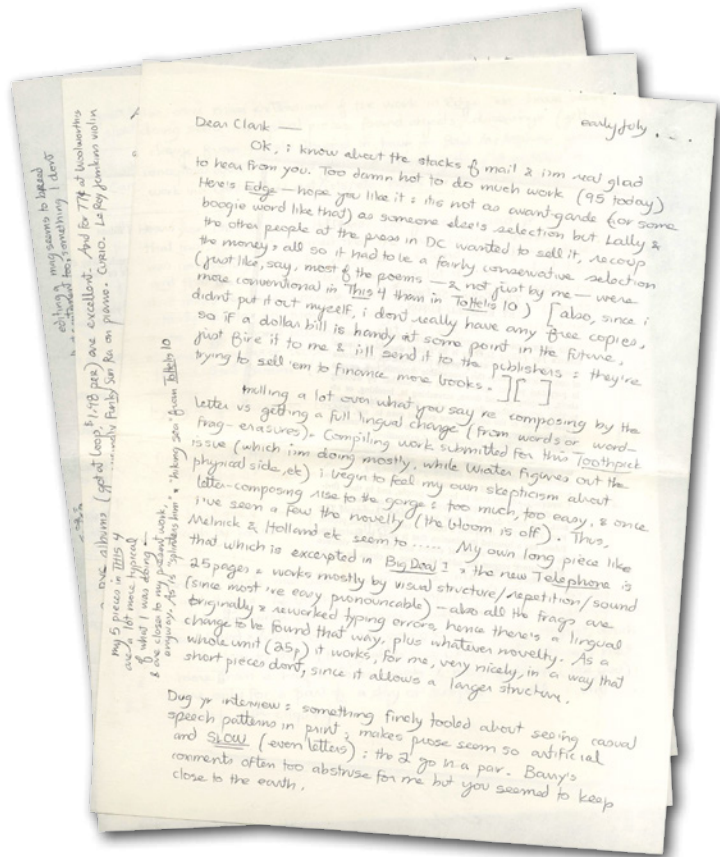 early July . . .
Dear Clark —
Ok, i know about the stacks of mail & i'm real glad
to hear from you. Too damn hot to do much work (95 today)
Here's Edge — hope you like it : it is not as avant-garde (or some
boogie word like that) as someone else's selection but Lally &
the other people at the press in DC wanted to sell it, recoup
the money & all so it had to be a fairly conservative selection
(just like, say, most of the poems — & not just by me — were
more conventional in This 4 than in Tottel's 10) [also, since i
didn't put it out myself, i don't really have any free copies,
so if a dollar bill is handy at some point in the future,
just fire it to me & i'll send it to the publishers : they're
trying to sell 'em to finance more books. ] [ ]
Mulling a lot over what you say re composing by the
letter vs getting a full lingual change (from words or word-
frag-erasures). Compiling work submitted for this Toothpick
issue (which i'm doing mostly, while Wiater figures out the
physical side, etc) i begin to feel my own skepticism about
letter-composing rise to the gorge : too much, too easy, & once
i've seen a few the novelty (the bloom is off). Thus,
Melnick & Holland etc seem to ..... My own long piece like
that which is excerpted in Big Deal 1 & the new Telephone is
25 pages & works mostly by visual structure/repetition/sound
(since most're easy pronouncable) — also all the frags are
originally & reworked typing errors, hence there's a lingual
change to be found that way, plus whatever novelty. As a
whole unit (25p) it works, for me, very nicely, in a way that
short pieces don't, since it allows a larger structure.
Dug yr interview : something finely tooled about seeing casual
speech patterns in print ; makes prose seem so artificial
and SLOW (even letters) : the 2 go in a pair. Barry's
comments often too abstruse for me but you seemed to keep
close to the earth.
my 5 pieces in THIS 4
are a lot more typical
of what I was doing —
& are closer to my present work,
anyway. As is "splinters him" & "biking sea" from Tottels 10
albums (got at Loop, $1.98 per) are excellent. And for 77¢ at Woolworths
Funky Sun Ra on piano. CURIO. LeRoy Jenkins violin
editing a mag seems to breed
too, something I don't